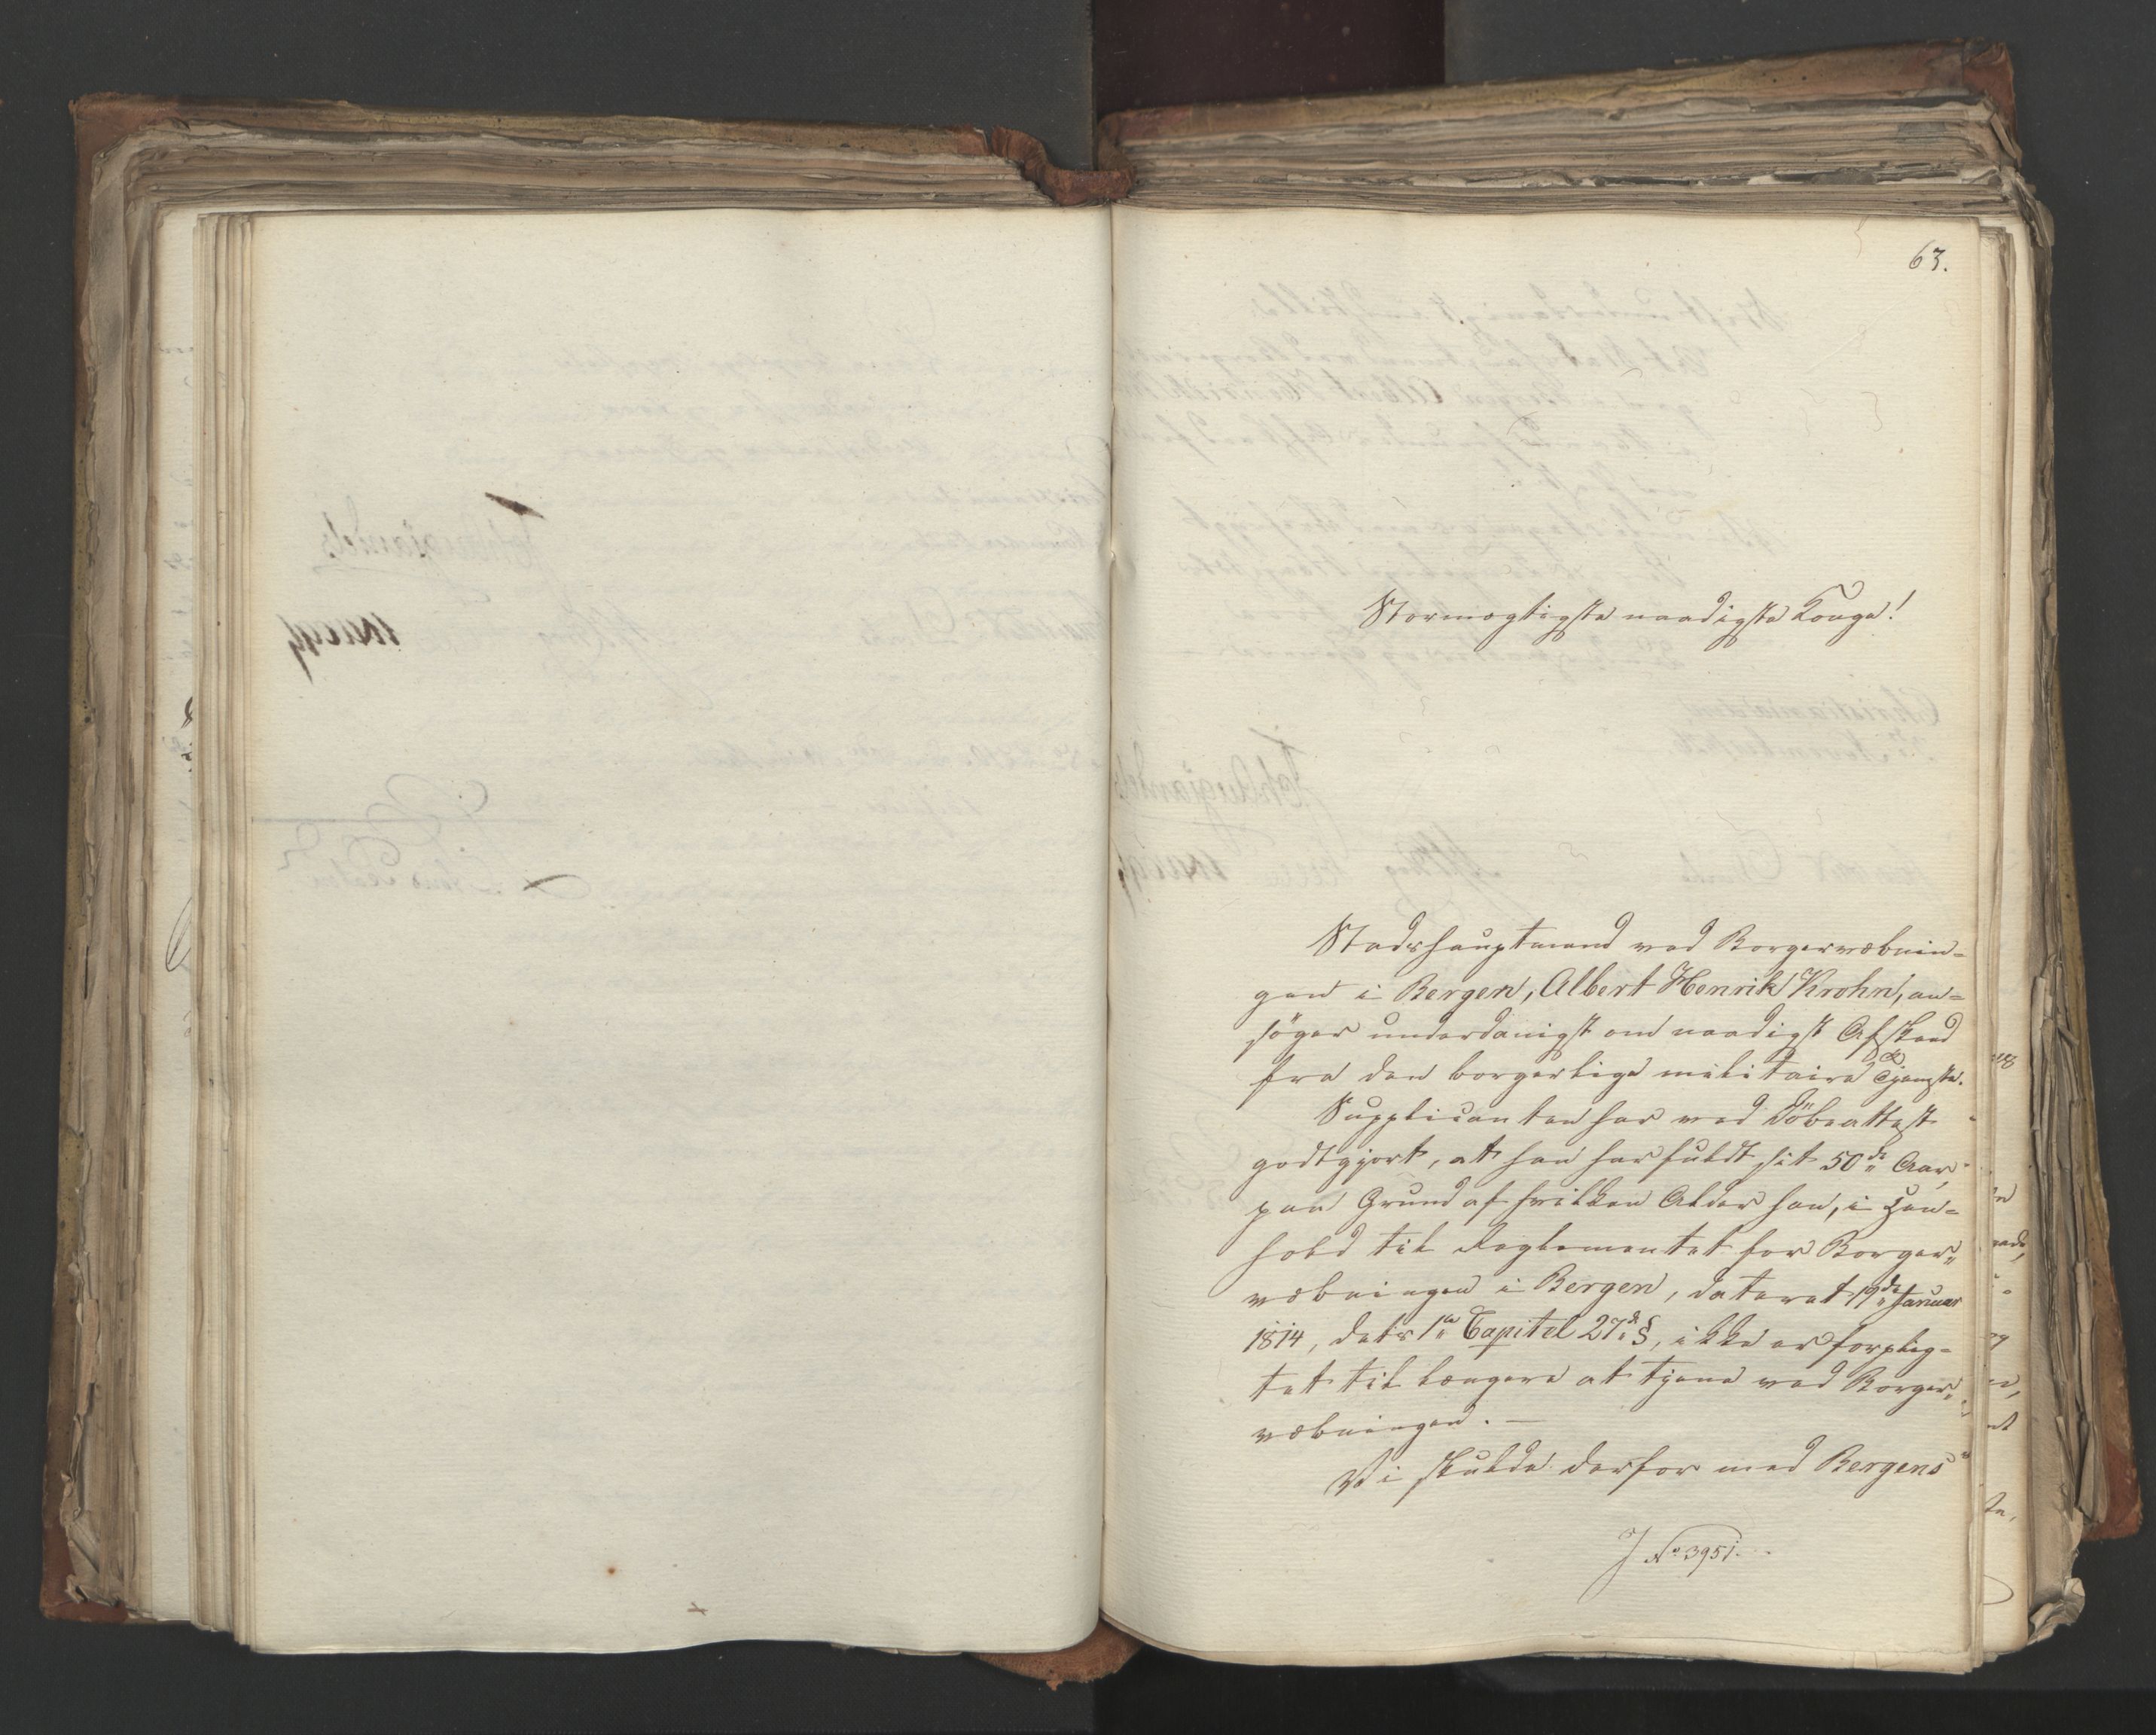 63.
Stormægtigste naadigste Konge!
Stadshauptmand ved Borgervæbnin=
gen i Bergen, Albert Henrik Krohn, an=
søger underdanigst om naadigst Afsked
fra den borgerlige militaire Tjeneste.
Supplicanten har ved Döbeattest
godtgjort, at han har fuldt sit 50de Aar,
paa Grund af hvilken Alder han, i Hen=
hold til Reglementet for Borger„
væbningen i Bergen, dateret 19de Januar
1814, dets 1ste Capitel 27de §, ikke er forplig=
tet til længere at tjene ved Borger„
væbningen. —
Vi skulde derfor med Bergens
J No 3951.